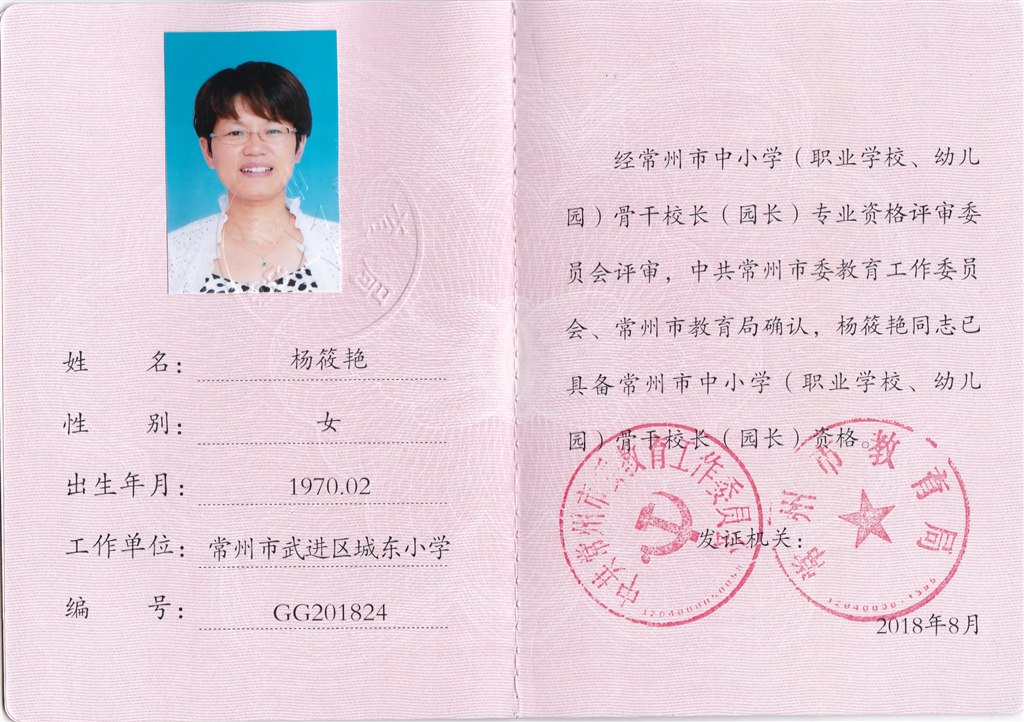 姓 名： 杨筱艳
性 别： 女
出生年月： 1970.02
工作单位： 常州市武进区城东小学
编 号： GG201824
经常州市中小学（职业学校、幼儿
园）骨干校长（园长）专业资格评审委
员会评审，中共常州市委教育工作委员
会、常州市教育局确认，杨筱艳同志已
具备常州市中小学（职业学校、幼儿
园）骨干校长（园长）资格。
中共常州市委教育工作委员会
常州市教育局
发证机关：
2018年8月